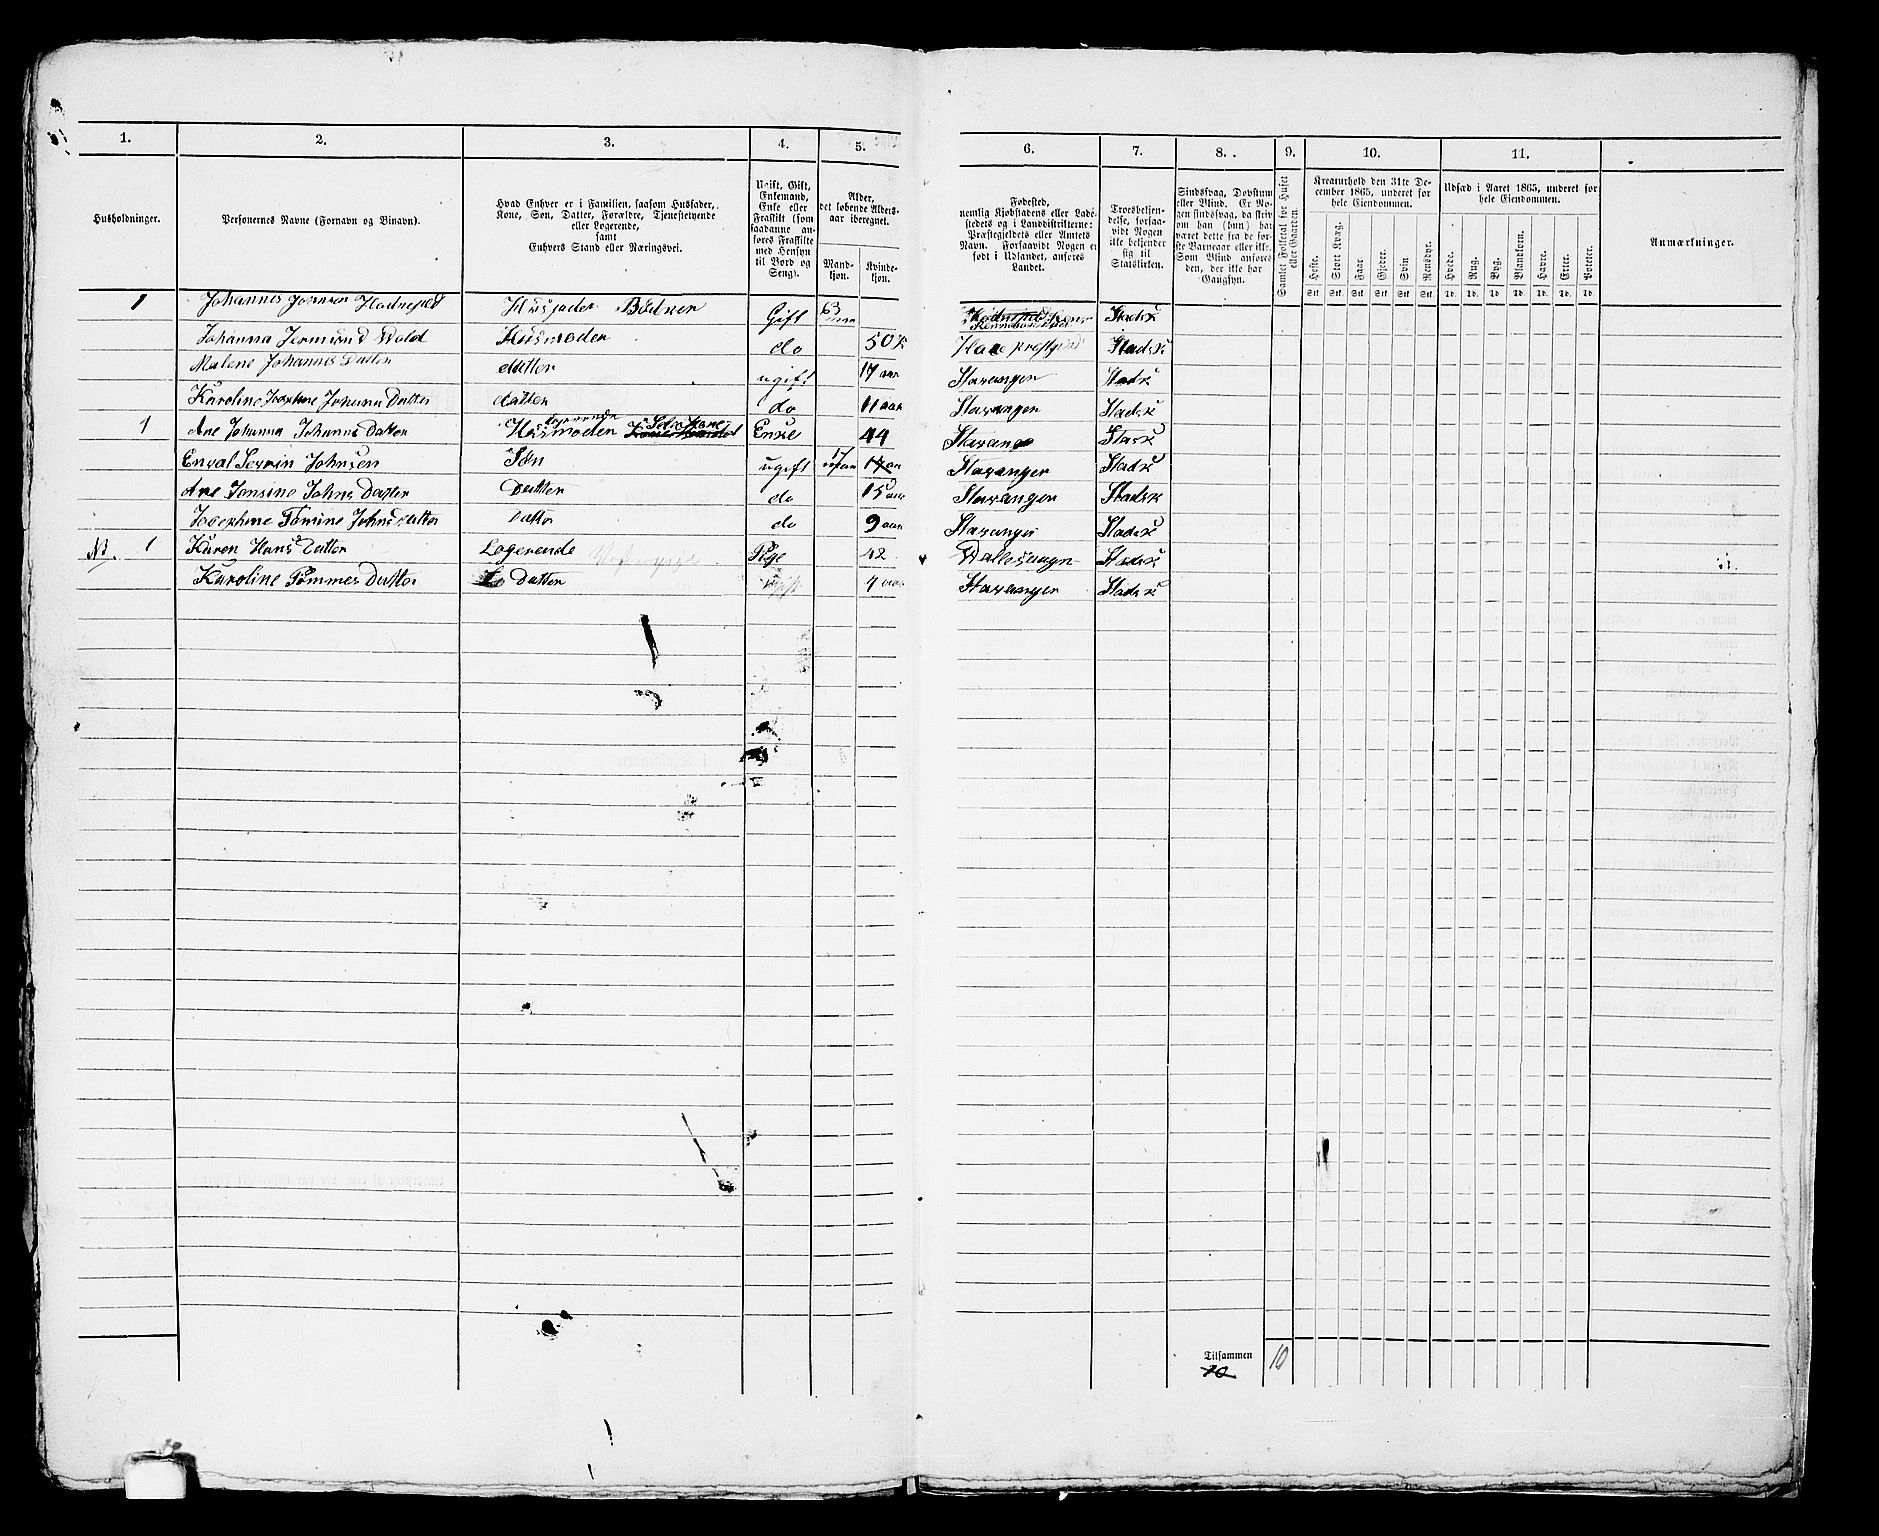 1. 2. 3. 4. 5. 6. 7. 8. 9. 10. 11.
Husholdninger.
Personernes Navne (Fornavn og Binavn).
Hvad Enhver er i Familien, saasom Husfader,
Kone, Søn, Datter, Forældre, Tjenestetyende
eller Logerende,
samt
Enhvers Stand eller Næringsvei.
Ugift, Gift,
Enkemand,
Enke eller
Fraskilt (som
saadanne an-
føres Fraskilte
med Hensyn
til Bord og
Seng).
Alder,
det løbende Alders-
aar iberegnet.
Mand-
kjøn.
Kvinde-
kjøn.
Fødested,
nemlig Kjøbstadens eller Lade-
stedets og i Landdistrikterne:
Præstegjeldets eller Amtets
Navn. Forsaavidt Nogen er
født i Udlandet, anføres
Landet.
Troesbekjen-
delse, forsaa-
vidt Nogen
ikke bekjender
sig til
Statskirken.
Sindssvag, Døvstum
eller Blind. Er No-
gen sindssvag, da skriv
om han (hun) har
været dette fra de før-
ste Barneaar eller ikke.
Som Blind anføres
den, der ikke har
Gangsyn.
Samlet Folketal for Huset
eller Gaarden.
Kreaturhold den 31te De-
cember 1865, underet for
hele Eiendommen.
Heste. Stort Kvæg. Faar. Gjeder. Svin. Rensdyr.
Stk. Stk. Stk. Stk. Stk. Stk.
Udsæd i Aaret 1865, underet for
hele Eiendommen.
Hvede. Rug. Byg. Blandkorn. Havre. Erter. Poteter.
Td. Td. Td. Td. Td. Td. Td.
Anmærkninger.
1 Johannes Jonnson Hadnefeld Husfader Bødker Gift 63 Stadsk
Johanna Jermund Wold Husmoder do 50 Stadsk
Malene Johannes Datter datter ugift 17 aar Stavanger Stadsk
Karoline Josephine Johanna Datter datter do 11 aar Stavanger Stadsk
1 Ane Johanna Johanns Datter Husmoder logerende Enke 44 Stavange Stadsk
Enval Sevrin Johnsen Søn ugift 17 Stavanger Stadsk
Ane Jensine Johns Datter Datter do 15 aar Stavanger Stadsk
Josephine Tomine Johns datter Datter do 9 aar Stavanger Stadsk
1 Karen Hans Datter Logerende Pige 42 Stadsk
Karoline Tommes Datter Datter ugift 4 aar Stavanger Stadsk
Tilsammen 10
10